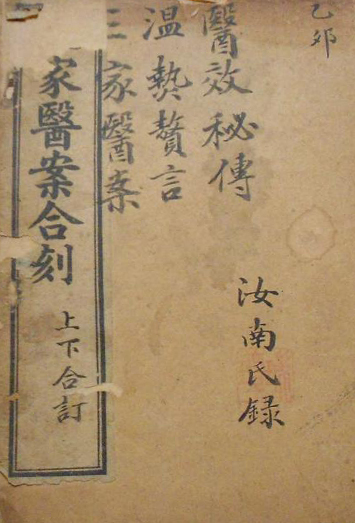 乙卯
醫效秘傳
溫熱贅言
三家醫案
汝南氏録
家醫案合刻
上下合訂